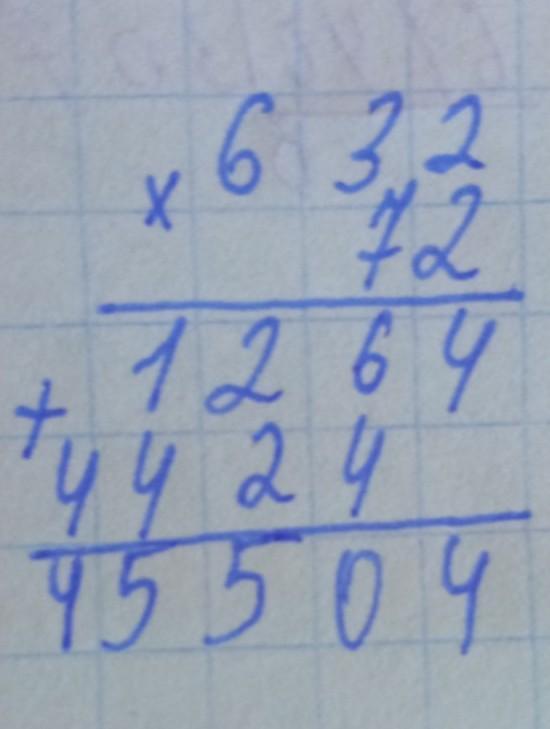 × 632
72
1264
+ 4424
45504